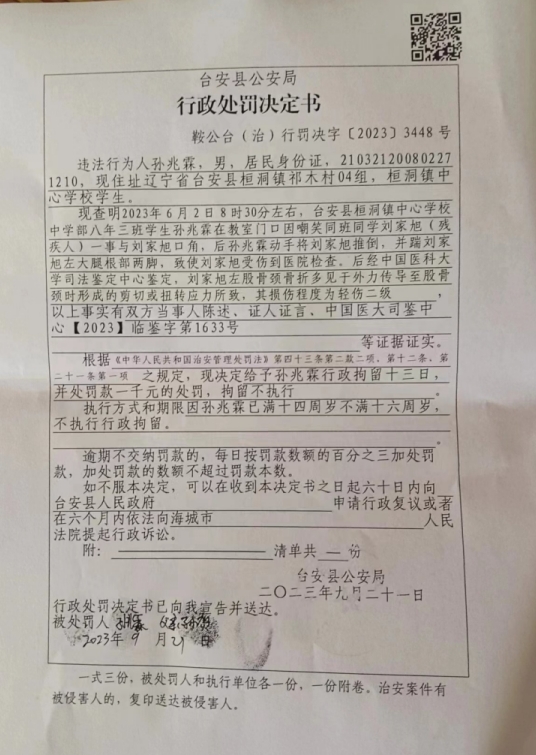 台安县公安局
行政处罚决定书
鞍公台（治）行罚决字〔2023〕3448号
违法行为人孙兆霖，男，居民身份证，21032120080227
1210，现住址辽宁省台安县桓洞镇祁木村04组，桓洞镇中
心学校学生。
现查明2023年6月2日8时30分左右，台安县桓洞镇中心学校
中学部八年三班学生孙兆霖在教室门口因嘲笑同班同学刘家旭（残
疾人）一事与刘家旭口角，后孙兆霖动手将刘家旭推倒，并踹刘家
旭左大腿根部两脚，致使刘家旭受伤到医院检查。后经中国医科大
学司法鉴定中心鉴定，刘家旭左股骨颈骨折多见于外力传导至股骨
颈时形成的剪切或扭转应力所致，其损伤程度为轻伤二级，
以上事实有双方当事人陈述、证人证言、中国医大司鉴中
心【2023】临鉴字第1633号
等证据证实。
根据《中华人民共和国治安管理处罚法》第四十三条第二款二项、第十二条、第
二十一条第一项 之规定，现决定给予孙兆霖行政拘留十三日，
并处罚款一千元的处罚，拘留不执行
执行方式和期限因孙兆霖已满十四周岁不满十六周岁，
不执行行政拘留。
逾期不交纳罚款的，每日按罚款数额的百分之三加处罚
款，加处罚款的数额不超过罚款本数。
如不服本决定，可以在收到本决定书之日起六十日内向
台安县人民政府 申请行政复议或者
在六个月内依法向海城市 人民
法院提起行政诉讼。
附： 清单共 一 份
台安县公安局
二〇二三年九月二十一日
行政处罚决定书已向我宣告并送达。
被处罚人
2023年 9 月 21 日
一式三份，被处罚人和执行单位各一份，一份附卷。治安案件有
被侵害人的，复印送达被侵害人。